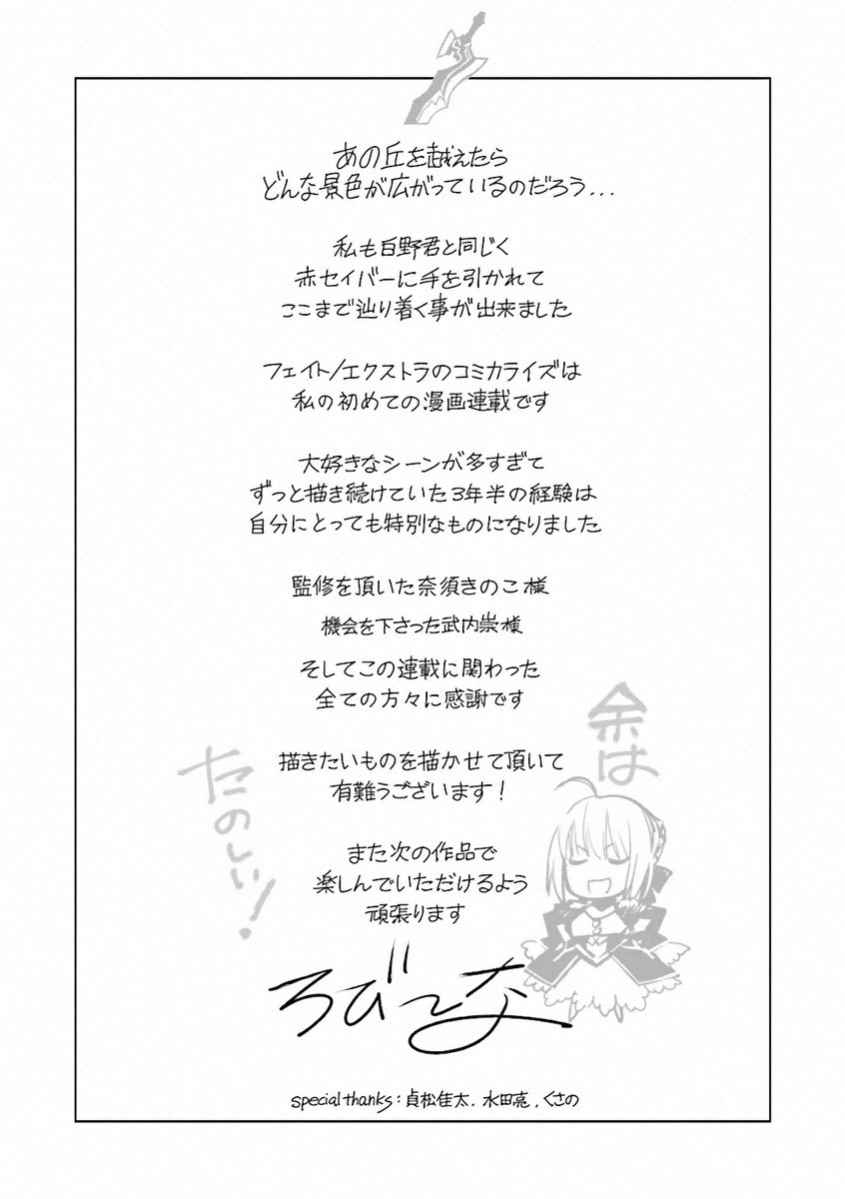 あの丘を越えたら
どんな景色が広がっているのだろう...
私も白野君と同じく
赤セイバーに手を引かれて
ここまで辿り着く事が出来ました
フェイト/エクストラのコミカライズは
私の初めての漫画連載です
大好きなシーンが多すぎて
ずっと描き続けていた3年半の経験は
自分にとっても特別なものになりました
監修を頂いた奈須きのこ様
機会を下さった武内崇様
そしてこの連載に関わった
全ての方々に感謝です
描きたいものを描かせて頂いて
有難うございます!
また次の作品で
楽しんでいただけるよう
頑張ります
余は
たのしい!
ろびーな
special thanks: 貞松佳太. 水田亮. くさの